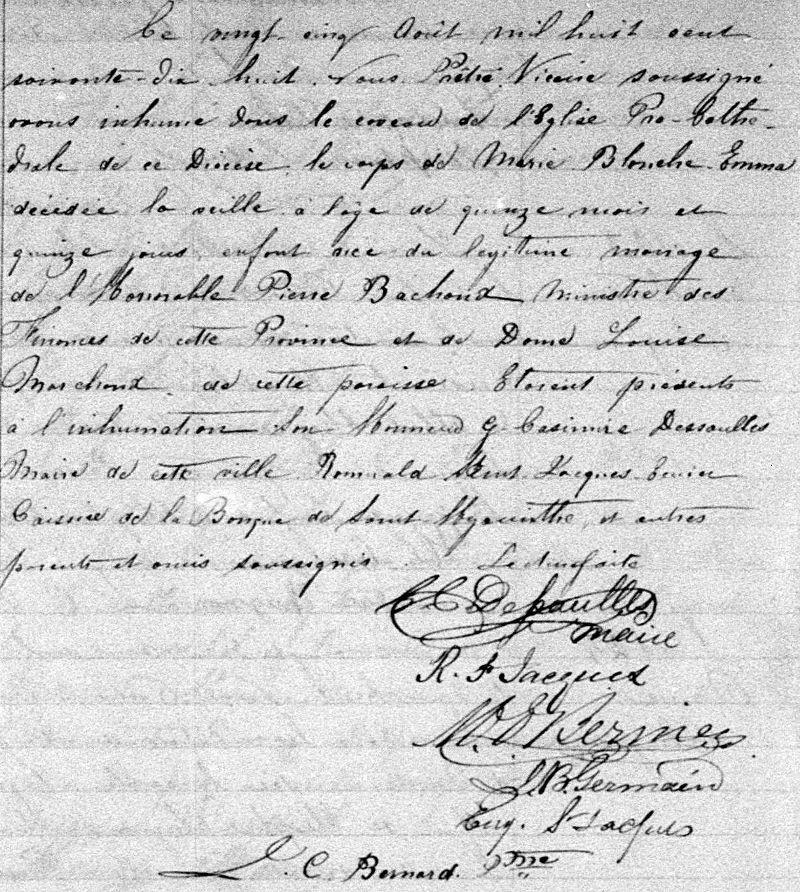 Ce vingt-cinq Août mil huit cent
soixante-dix huit. Nous Prêtre Vicaire soussigné
avons inhumé dans le caveau de l'Eglise Pro-Cathé-
drale de ce Diocèse le corps de Marie Blanche Emma
décédée la veille à l'âge de quinze mois et
quinze jours enfant née du légitime mariage
de l'Honorable Pierre Bachand Ministre des
Finances de cette Province et de Dame Louise
Marchand de cette paroisse Etaient présents
à l'inhumation Son Honneur G. Casimire Dessaulles
Maire de cette ville Romuald Saint-Jacques Ecuier
Caissier de la Banque de Saint Hyacinthe, et autres
parents et amis soussignés. Lecture faite
G. C. Dessaulles
maire
R. St Jacques
M. E. Bernier
J. B. Germain
Eug. St Jacques
L. C. Bernard. Ptre